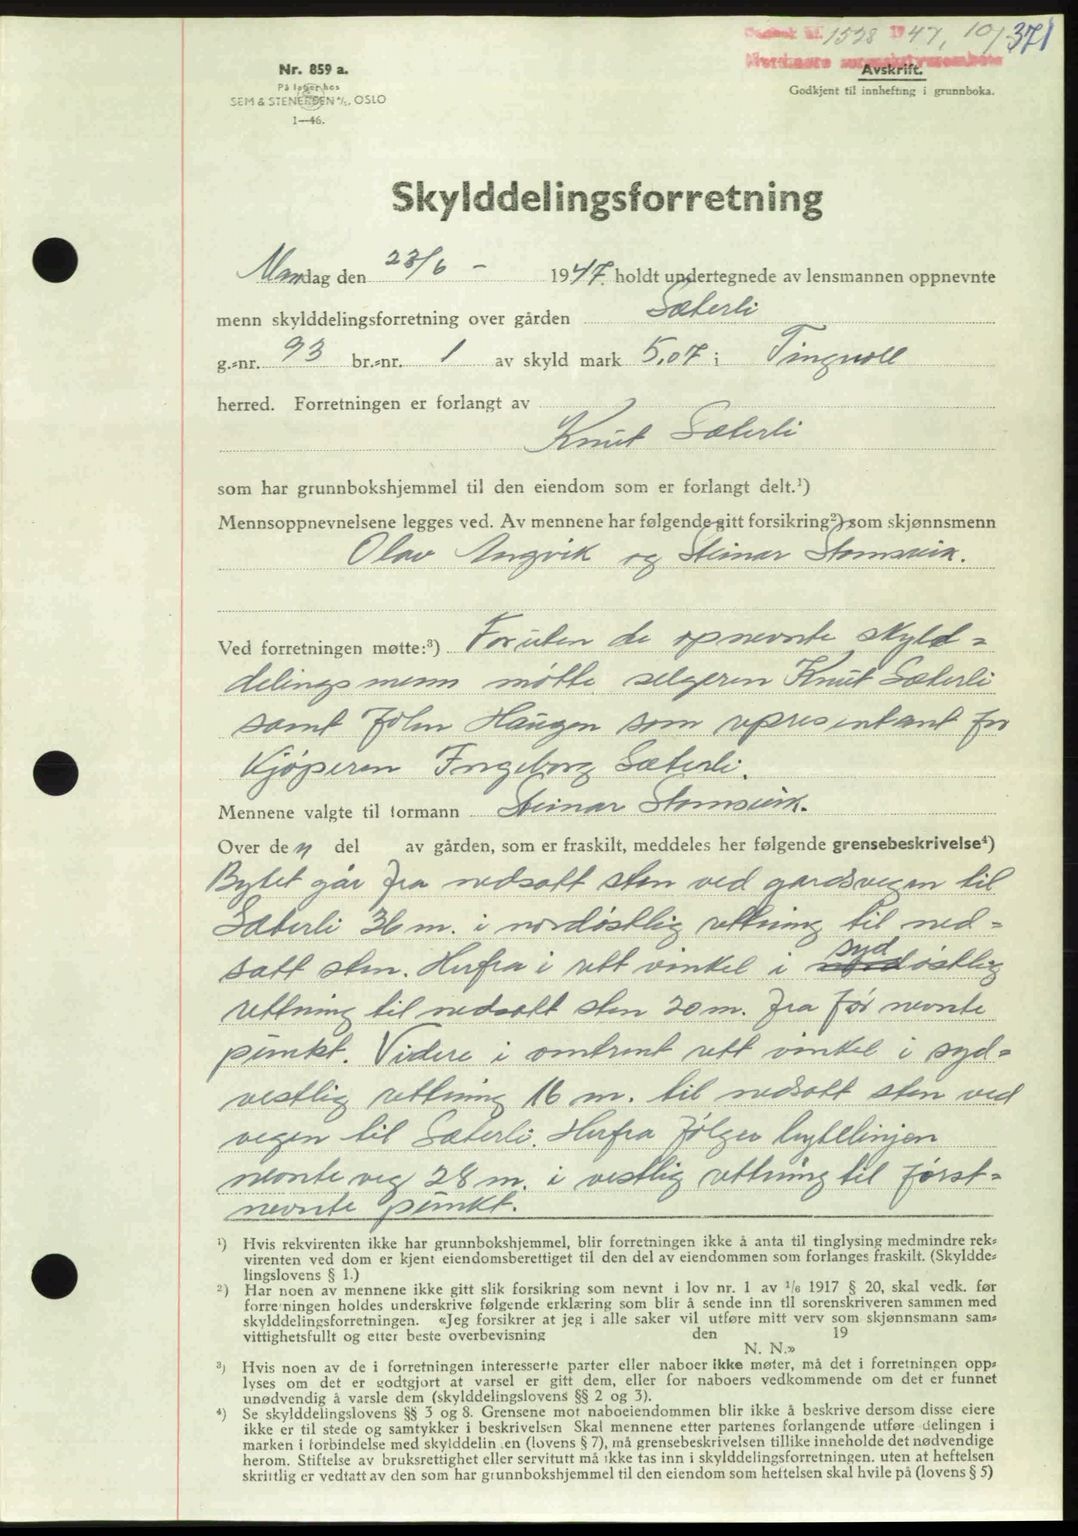 Dagbok nr. 1528 1947, 10/ 371
Nordmøre sorenskriverembete
Nr. 859 a.
På lager hos
SEM & STENERSEN A/S, OSLO
1—46.
Avskrift.
Godkjent til innhefting i grunnboka.
Skylddelingsforretning
Mandag den 23/6 - 1947. holdt undertegnede av lensmannen oppnevnte
menn skylddelingsforretning over gården Sæterli
g.-nr. 93 br.-nr. 1 av skyld mark 5,07 i Tingvoll
herred. Forretningen er forlangt av
Knut Sæterli
som har grunnbokshjemmel til den eiendom som er forlangt delt.¹)
Mennsoppnevnelsene legges ved. Av mennene har følgende gitt forsikring²) som skjønnsmenn
Olav Angvik og Steinar Stomsvik.
Ved forretningen møtte:³) Foruten de opnevnte skyld=
delingsmenn møtte selgeren Knut Sæterli
samt John Haugen som representant for
kjøperen Ingeborg Sæterli.
Mennene valgte til formann Steinar Stomsvik.
Over den del av gården, som er fraskilt, meddeles her følgende grensebeskrivelse⁴)
Bytet går fra nedsatt sten ved gardsvegen til
Sæterli 36 m. i nordøstlig rettning til ned=
satt sten. Herfra i rett vinkel i sydøstlig
rettning til nedsatt sten 20 m. fra før nevnte
punkt. Videre i omtrent rett vinkel i syd=
vestlig rettning 16 m. til nedsatt sten ved
vegen til Sæterli. Herfra følger bytelinjen
nevnte veg 28 m. i vestlig rettning til først=
nevnte punkt.
¹) Hvis rekvirenten ikke har grunnbokshjemmel, blir forretningen ikke å anta til tinglysing medmindre rek-
virenten ved dom er kjent eiendomsberettiget til den del av eiendommen som forlanges fraskilt. (Skyldde-
lingslovens § 1.)
²) Har noen av mennene ikke gitt slik forsikring som nevnt i lov nr. 1 av 1/6 1917 § 20, skal vedk. før
forretningen holdes underskrive følgende erklæring som blir å sende inn til sorenskriveren sammen med
skylddelingsforretningen. «Jeg forsikrer at jeg i alle saker vil utføre mitt verv som skjønnsmann sam-
vittighetsfullt og etter beste overbevisning den 19
N. N.»
³) Hvis noen av de i forretningen interesserte parter eller naboer ikke møter, må det i forretningen opp-
lyses om det er godtgjort at varsel er gitt dem, eller for naboers vedkommende om det er funnet
unødvendig å varsle dem (skylddelingslovens §§ 2 og 3).
⁴) Se skylddelingslovens §§ 3 og 8. Grensene mot naboeiendommen blir ikke å beskrive dersom disse eiere
ikke er til stede og samtykker i beskrivelsen Skal mennene etter partenes forlangende utføre delingen i
marken i forbindelse med skylddelingen (lovens § 7), må grensebeskrivelsen tillike inneholde det nødvendige
herom. Stiftelse av bruksrettighet eller servitutt må ikke tas inn i skylddelingsforretningen. uten at heftelsen
skriftlig er vedtatt av den som har grunnbokshjemmel til den eiendom som heftelsen skal hvile på (lovens § 5)